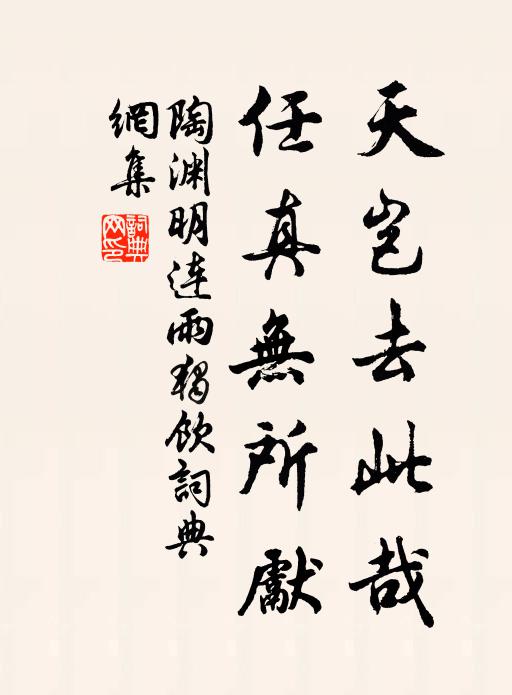 天豈去此哉
任真無所獻
陶渊明連雨獨飲詞典
網集
詞典
网印